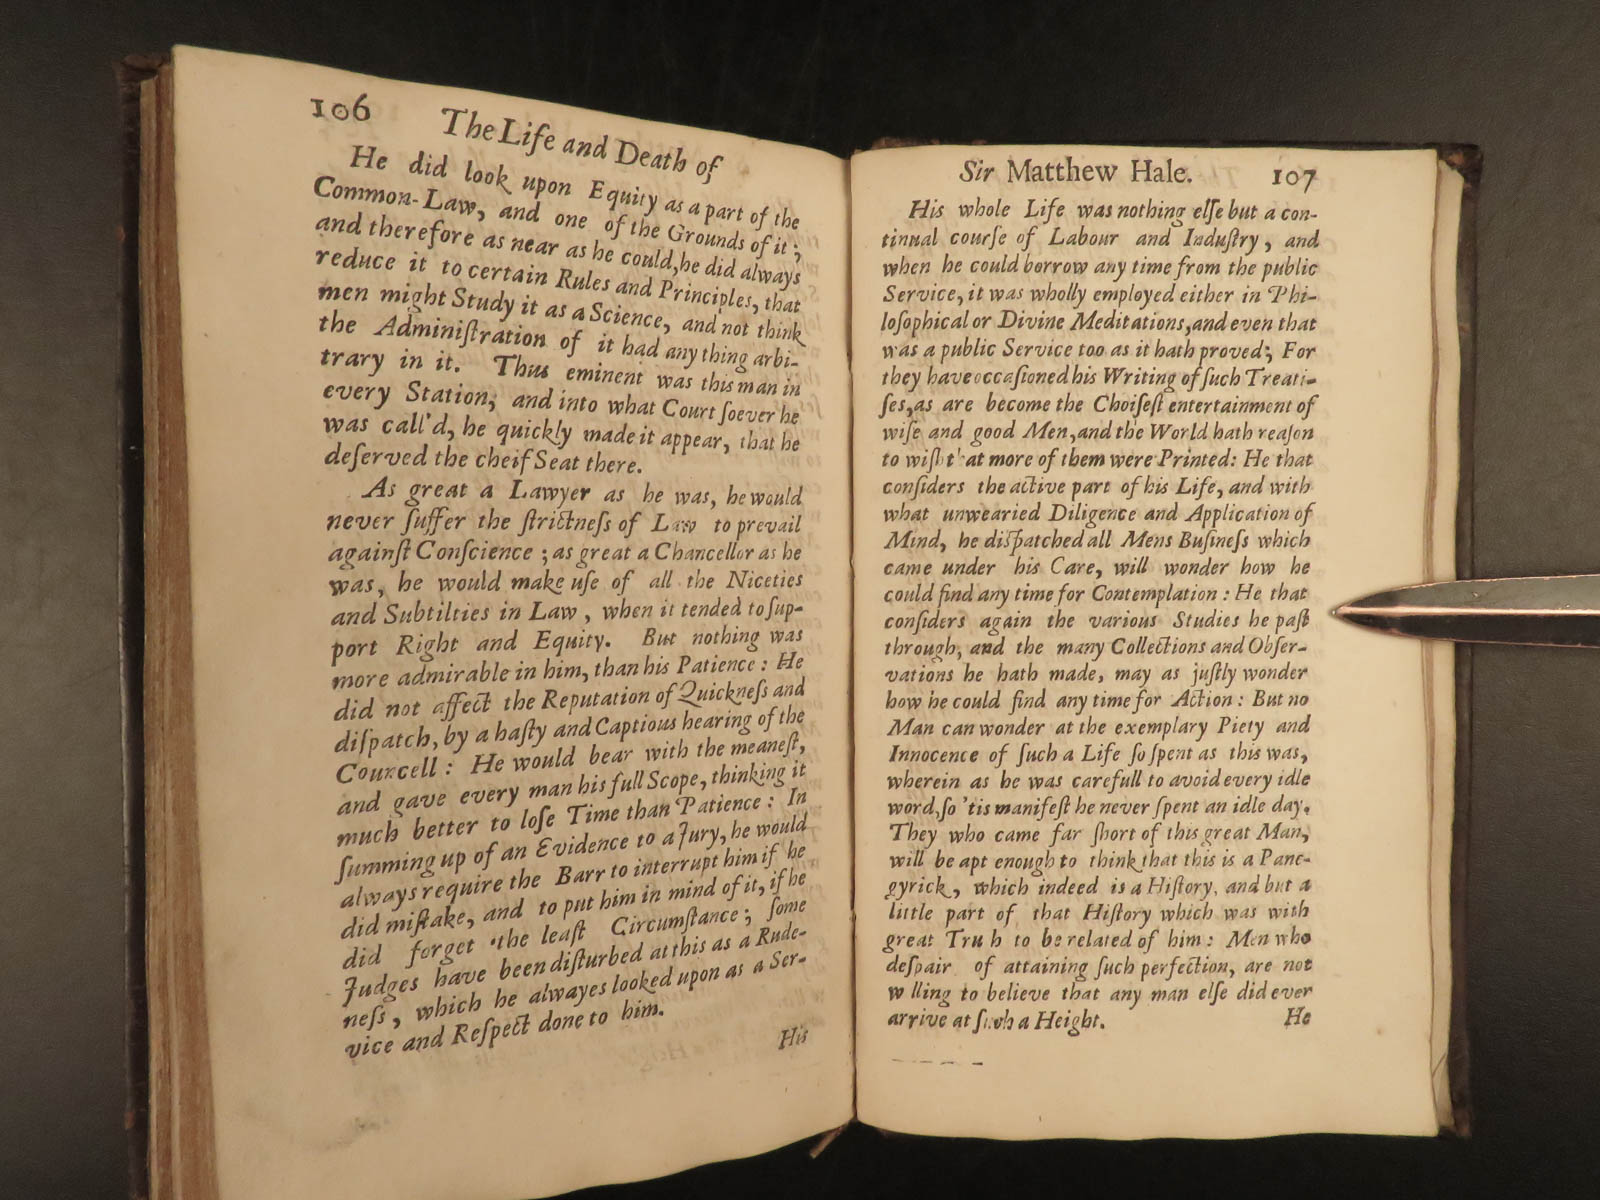 106
The Life and Death of
He did look upon Equity as a part of the
Common-Law, and one of the Grounds of it;
and therefore as near as he could, he did always
reduce it to certain Rules and Principles, that
men might Study it as a Science, and not think
the Adminiſtration of it had any thing arbi-
trary in it. Thus eminent was this man in
every Station, and into what Court ſoever he
was call'd, he quickly made it appear, that he
deſerved the cheif Seat there.
As great a Lawyer as he was, he would
never ſuffer the ſtrictneſs of Law to prevail
againſt Conſcience; as great a Chancellor as he
was, he would make uſe of all the Niceties
and Subtilties in Law, when it tended to ſup-
port Right and Equity. But nothing was
more admirable in him, than his Patience: He
did not affect the Reputation of Quickneſs and
diſpatch, by a haſty and Captious hearing of the
Councell: He would bear with the meaneſt,
and gave every man his full Scope, thinking it
much better to loſe Time than Patience: In
ſumming up of an Evidence to a Jury, he would
always require the Barr to interrupt him if he
did miſtake, and to put him in mind of it, if he
did forget the leaſt Circumſtance; ſome
Judges have been diſturbed at this as a Rude-
neſs, which he alwayes looked upon as a Ser-
vice and Reſpect done to him.
His
Sir Matthew Hale. 107
His whole Life was nothing elſe but a con-
tinual courſe of Labour and Induſtry, and
when he could borrow any time from the public
Service, it was wholly employed either in Phi-
loſophical or Divine Meditations, and even that
was a public Service too as it hath proved; For
they have occaſioned his Writing of ſuch Treati-
ſes, as are become the Choiſeſt entertainment of
wiſe and good Men, and the World hath reaſon
to wiſh t'at more of them were Printed: He that
conſiders the active part of his Life, and with
what unwearied Diligence and Application of
Mind, he diſpatched all Mens Buſineſs which
came under his Care, will wonder how he
could find any time for Contemplation: He that
conſiders again the various Studies he paſt
through, and the many Collections and Obſer-
vations he hath made, may as juſtly wonder
how he could find any time for Action: But no
Man can wonder at the exemplary Piety and
Innocence of ſuch a Life ſo ſpent as this was,
wherein as he was carefull to avoid every idle
word, ſo 'tis manifeſt he never ſpent an idle day.
They who came far ſhort of this great Man,
will be apt enough to think that this is a Pane-
gyrick, which indeed is a Hiſtory, and but a
little part of that Hiſtory which was with
great Tru h to be related of him: Men who
deſpair of attaining ſuch perfection, are not
w lling to believe that any man elſe did ever
arrive at ſuch a Height.
He